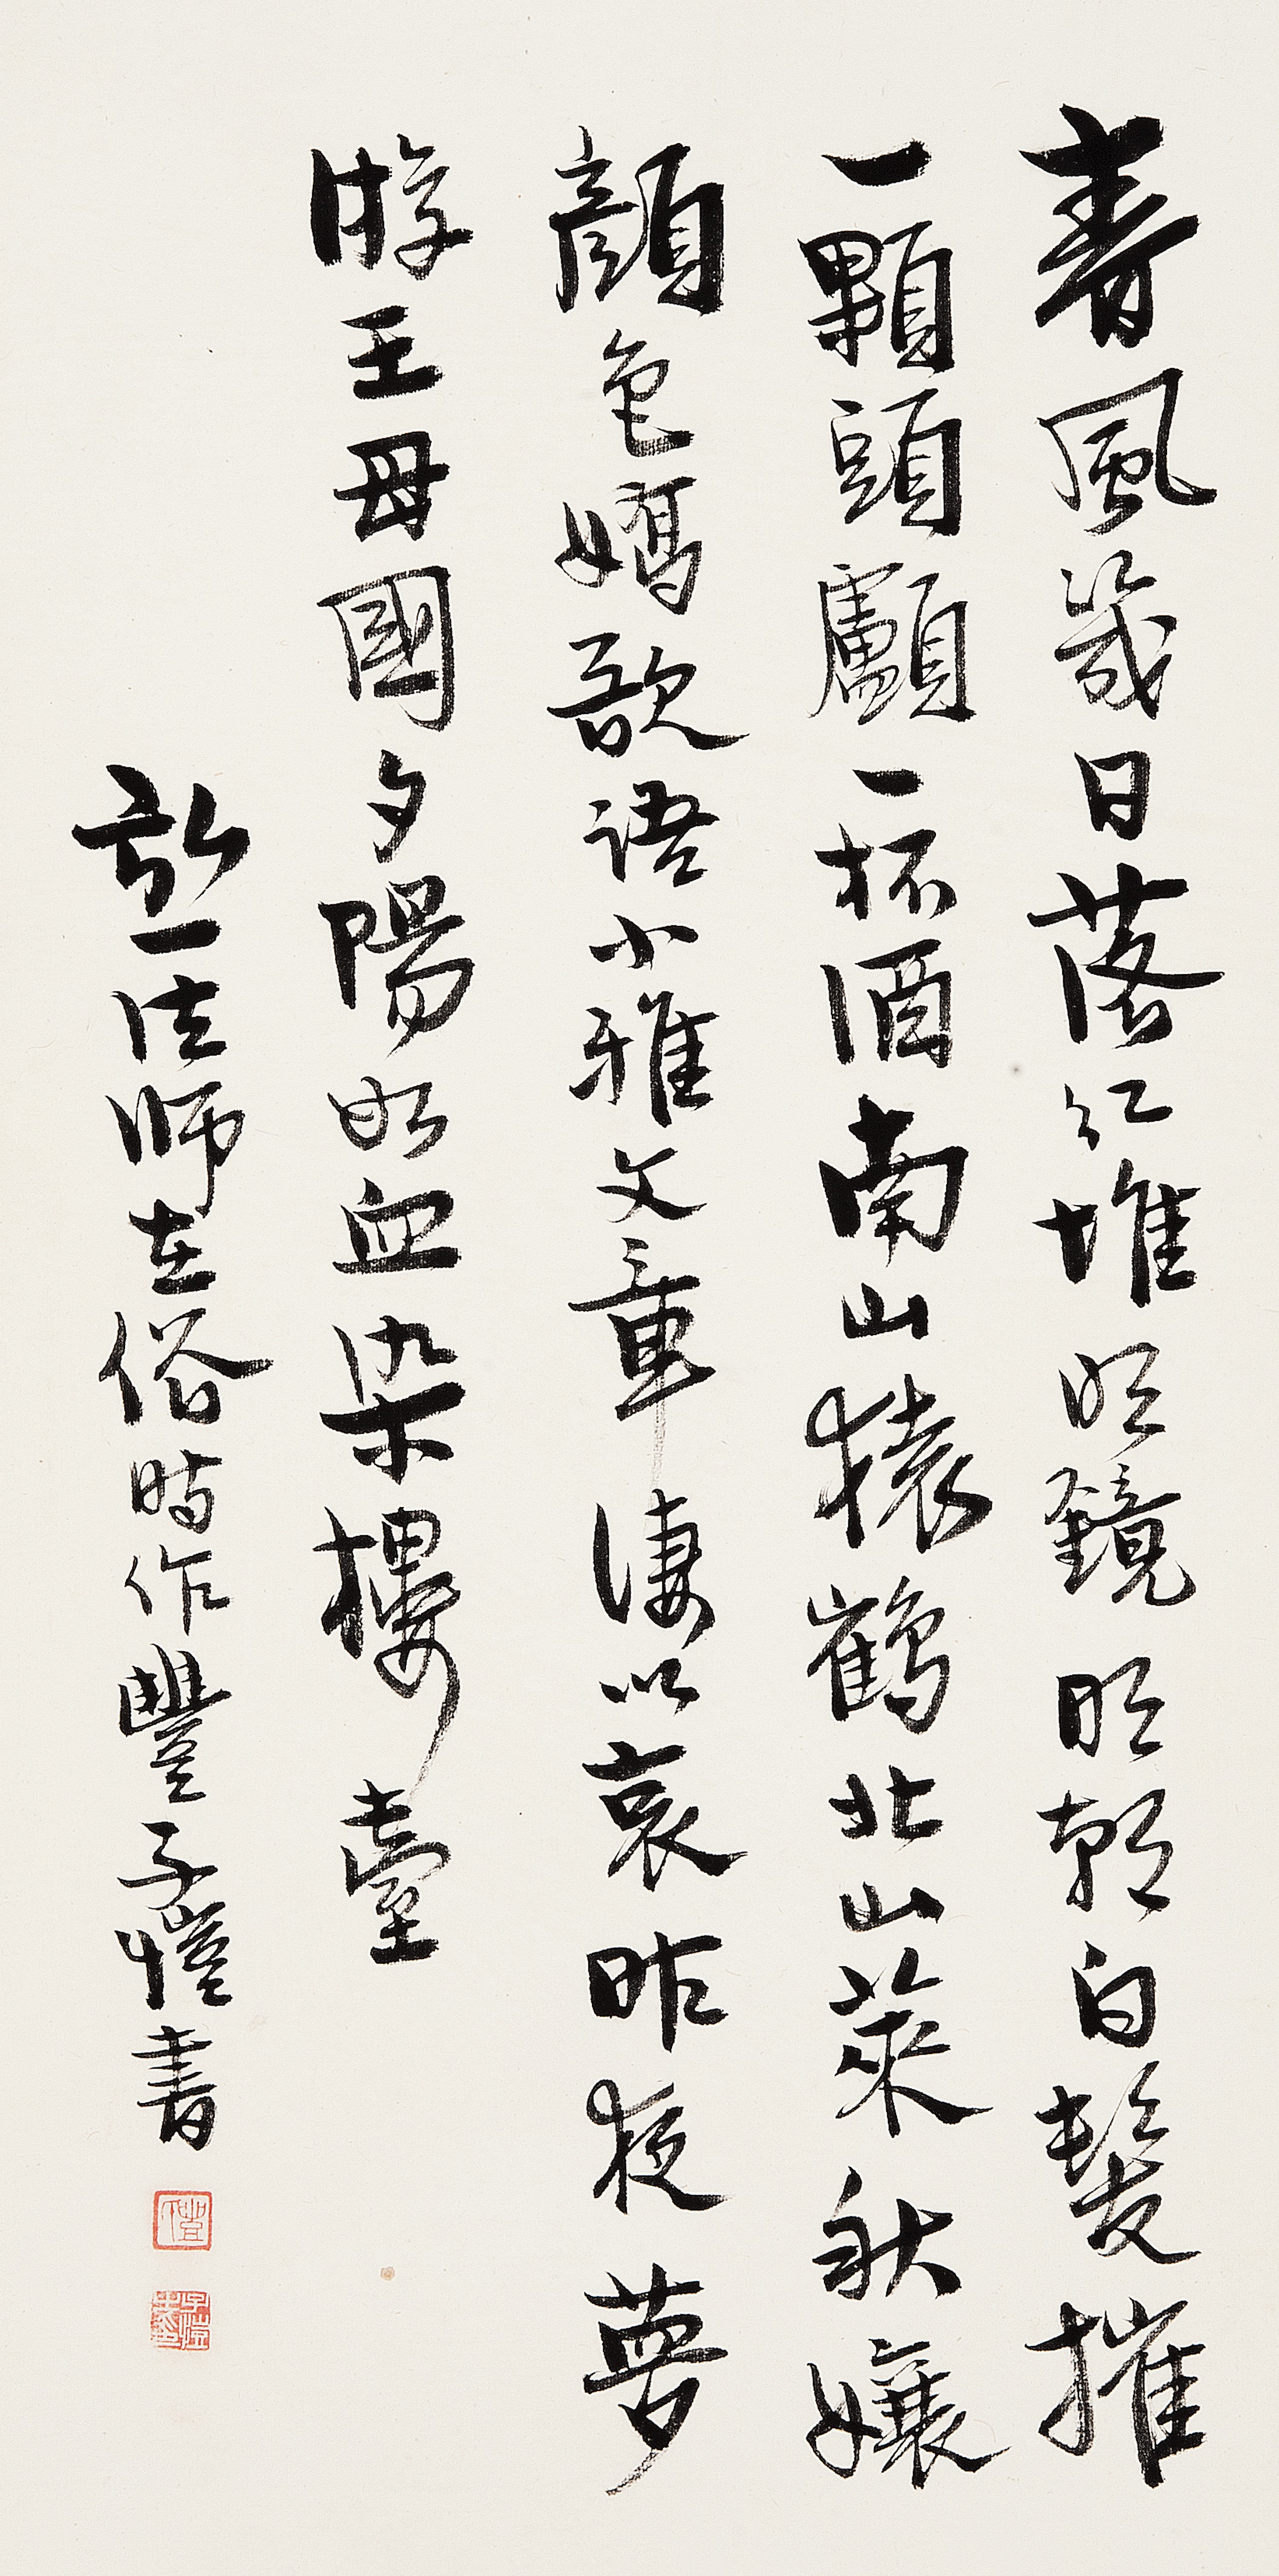 春風幾日落紅堆明鏡明朝白髮摧
一顆頭顱一杯酒南山猿鶴北山萊秋孃
顏色嬌欲語小雅文章悽以哀昨夜夢
游王母國夕陽如血染樓臺
弘一法師在俗時作豐子愷書
愷